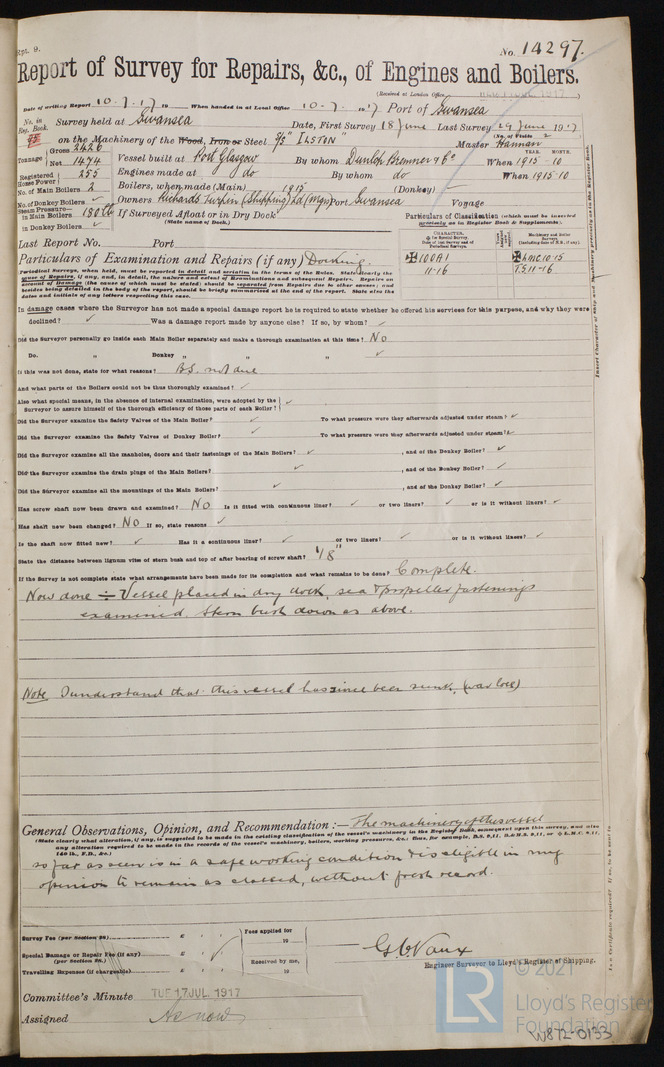 Rpt. 9.
No. 14297.
Report of Survey for Repairs, &c., of Engines and Boilers.
(Received at London Office 17 JUL 1917)
Date of writing Report 10-7-17 19 When handed in at Local Office 10-7-1917 Port of Swansea
No. in Reg. Book. Survey held at Swansea Date, First Survey 18 June Last Survey 29 June 1917
(No. of Visits 2
on the Machinery of the Wood, Iron or Steel S/S "ILSTON" Master Hannan
Tonnage Gross 2426 Net 1474 Vessel built at Port Glasgow By whom Dunlop Bremner & Co When 1915-10
YEAR. MONTH.
Registered Horse Power 255 Engines made at do By whom do When 1915-10
No. of Main Boilers 2 Boilers, when made (Main) 1915 (Donkey) –
No. of Donkey Boilers ✓ Owners Richards Turpin (Shipping) Ld (Mgrs) Port Swansea Voyage
Steam Pressure— in Main Boilers 180 lb If Surveyed Afloat or in Dry Dock
(State name of Dock.)
in Donkey Boilers ✓
Particulars of Classification (which must be inserted precisely as in Register Book & Supplements).
Last Report No. Port
CHARACTER.
Machinery and Boiler Surveys (including date of N.B., if any).
✠ 100A1 ✠ LMC 10.15
11-16 T.S 11-16
Particulars of Examination and Repairs (if any) Docking.
Periodical Surveys, when held, must be reported in detail and seriatim in the terms of the Rules. State clearly the cause of Repairs, if any, and, in detail, the nature and extent of Examinations and subsequent Repairs. Repairs on account of Damage (the cause of which must be stated) should be separated from Repairs due to other causes; and besides being detailed in the body of the report, should be briefly summarised at the end of the report. State also the dates and initials of any letters respecting this case.
In damage cases where the Surveyor has not made a special damage report he is required to state whether he offered his services for this purpose, and why they were
declined? ✓ Was a damage report made by anyone else? If so, by whom? ✓
Did the Surveyor personally go inside each Main Boiler separately and make a thorough examination at this time? No
Do. " Donkey " " " ✓
If this was not done, state for what reasons? B.S. not due
And what parts of the Boilers could not be thus thoroughly examined? ✓
Also what special means, in the absence of internal examination, were adopted by the Surveyor to assure himself of the thorough efficiency of those parts of each Boiler? ✓
Did the Surveyor examine the Safety Valves of the Main Boiler? ✓ To what pressure were they afterwards adjusted under steam? ✓
Did the Surveyor examine the Safety Valves of Donkey Boiler? ✓ To what pressure were they afterwards adjusted under steam? ✓
Did the Surveyor examine all the manholes, doors and their fastenings of the Main Boilers? ✓ , and of the Donkey Boiler? ✓
Did the Surveyor examine the drain plugs of the Main Boilers? ✓ , and of the Donkey Boiler? ✓
Did the Surveyor examine all the mountings of the Main Boilers? ✓ , and of the Donkey Boiler? ✓
Has screw shaft now been drawn and examined? No Is it fitted with continuous liner? ✓ or two liners? ✓ or is it without liners? ✓
Has shaft now been changed? No If so, state reasons ✓
Is the shaft now fitted new? ✓ Has it a continuous liner? ✓ or two liners? ✓ or is it without liners? ✓
State the distance between lignum vitæ of stern bush and top of after bearing of screw shaft? 1/8"
If the Survey is not complete state what arrangements have been made for its completion and what remains to be done? Complete.
Now done :– Vessel placed in dry dock, sea & propeller fastenings
examined. Stern bush down as above.
Note I understand that this vessel has since been sunk, (war loss)
General Observations, Opinion, and Recommendation :— The machinery of this vessel
(State clearly what alteration, if any, is suggested to be made in the existing classification of the vessel's machinery in the Register Book, consequent upon this survey, and also any alteration required to be made in the records of the vessel's machinery, boilers, working pressures, &c.; thus, for example, B.S. 9,11, B.&M.S. 9,11, or ✠ L.M.C. 9,11, 140 lb., F.D., &c.)
so far as seen is in a safe working condition & is eligible in my
opinion to remain as classed, without fresh record.
Survey Fee (per Section 28) £ : :
Fees applied for 19
Special Damage or Repair Fee (if any) (per Section 28.) £ : :
Received by me, 19
Travelling Expenses (if chargeable) £ : :
G. C. Vaux
Engineer Surveyor to Lloyd's Register of Shipping.
Committee's Minute TUE 17 JUL. 1917
Assigned As now
LR © 2021
Lloyd's Register
Foundation
W872-0133